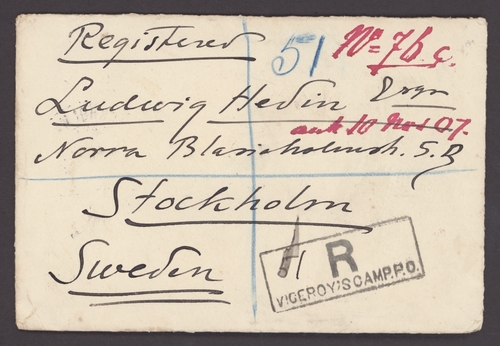 Registered
51
No = 76 c.
Ludwig Hedin Esqr
ank 10 Nov 07.
Norra Blasieholmsh. 5.B
Stockholm
Sweden
R
VICEROY'S CAMP.P.O.